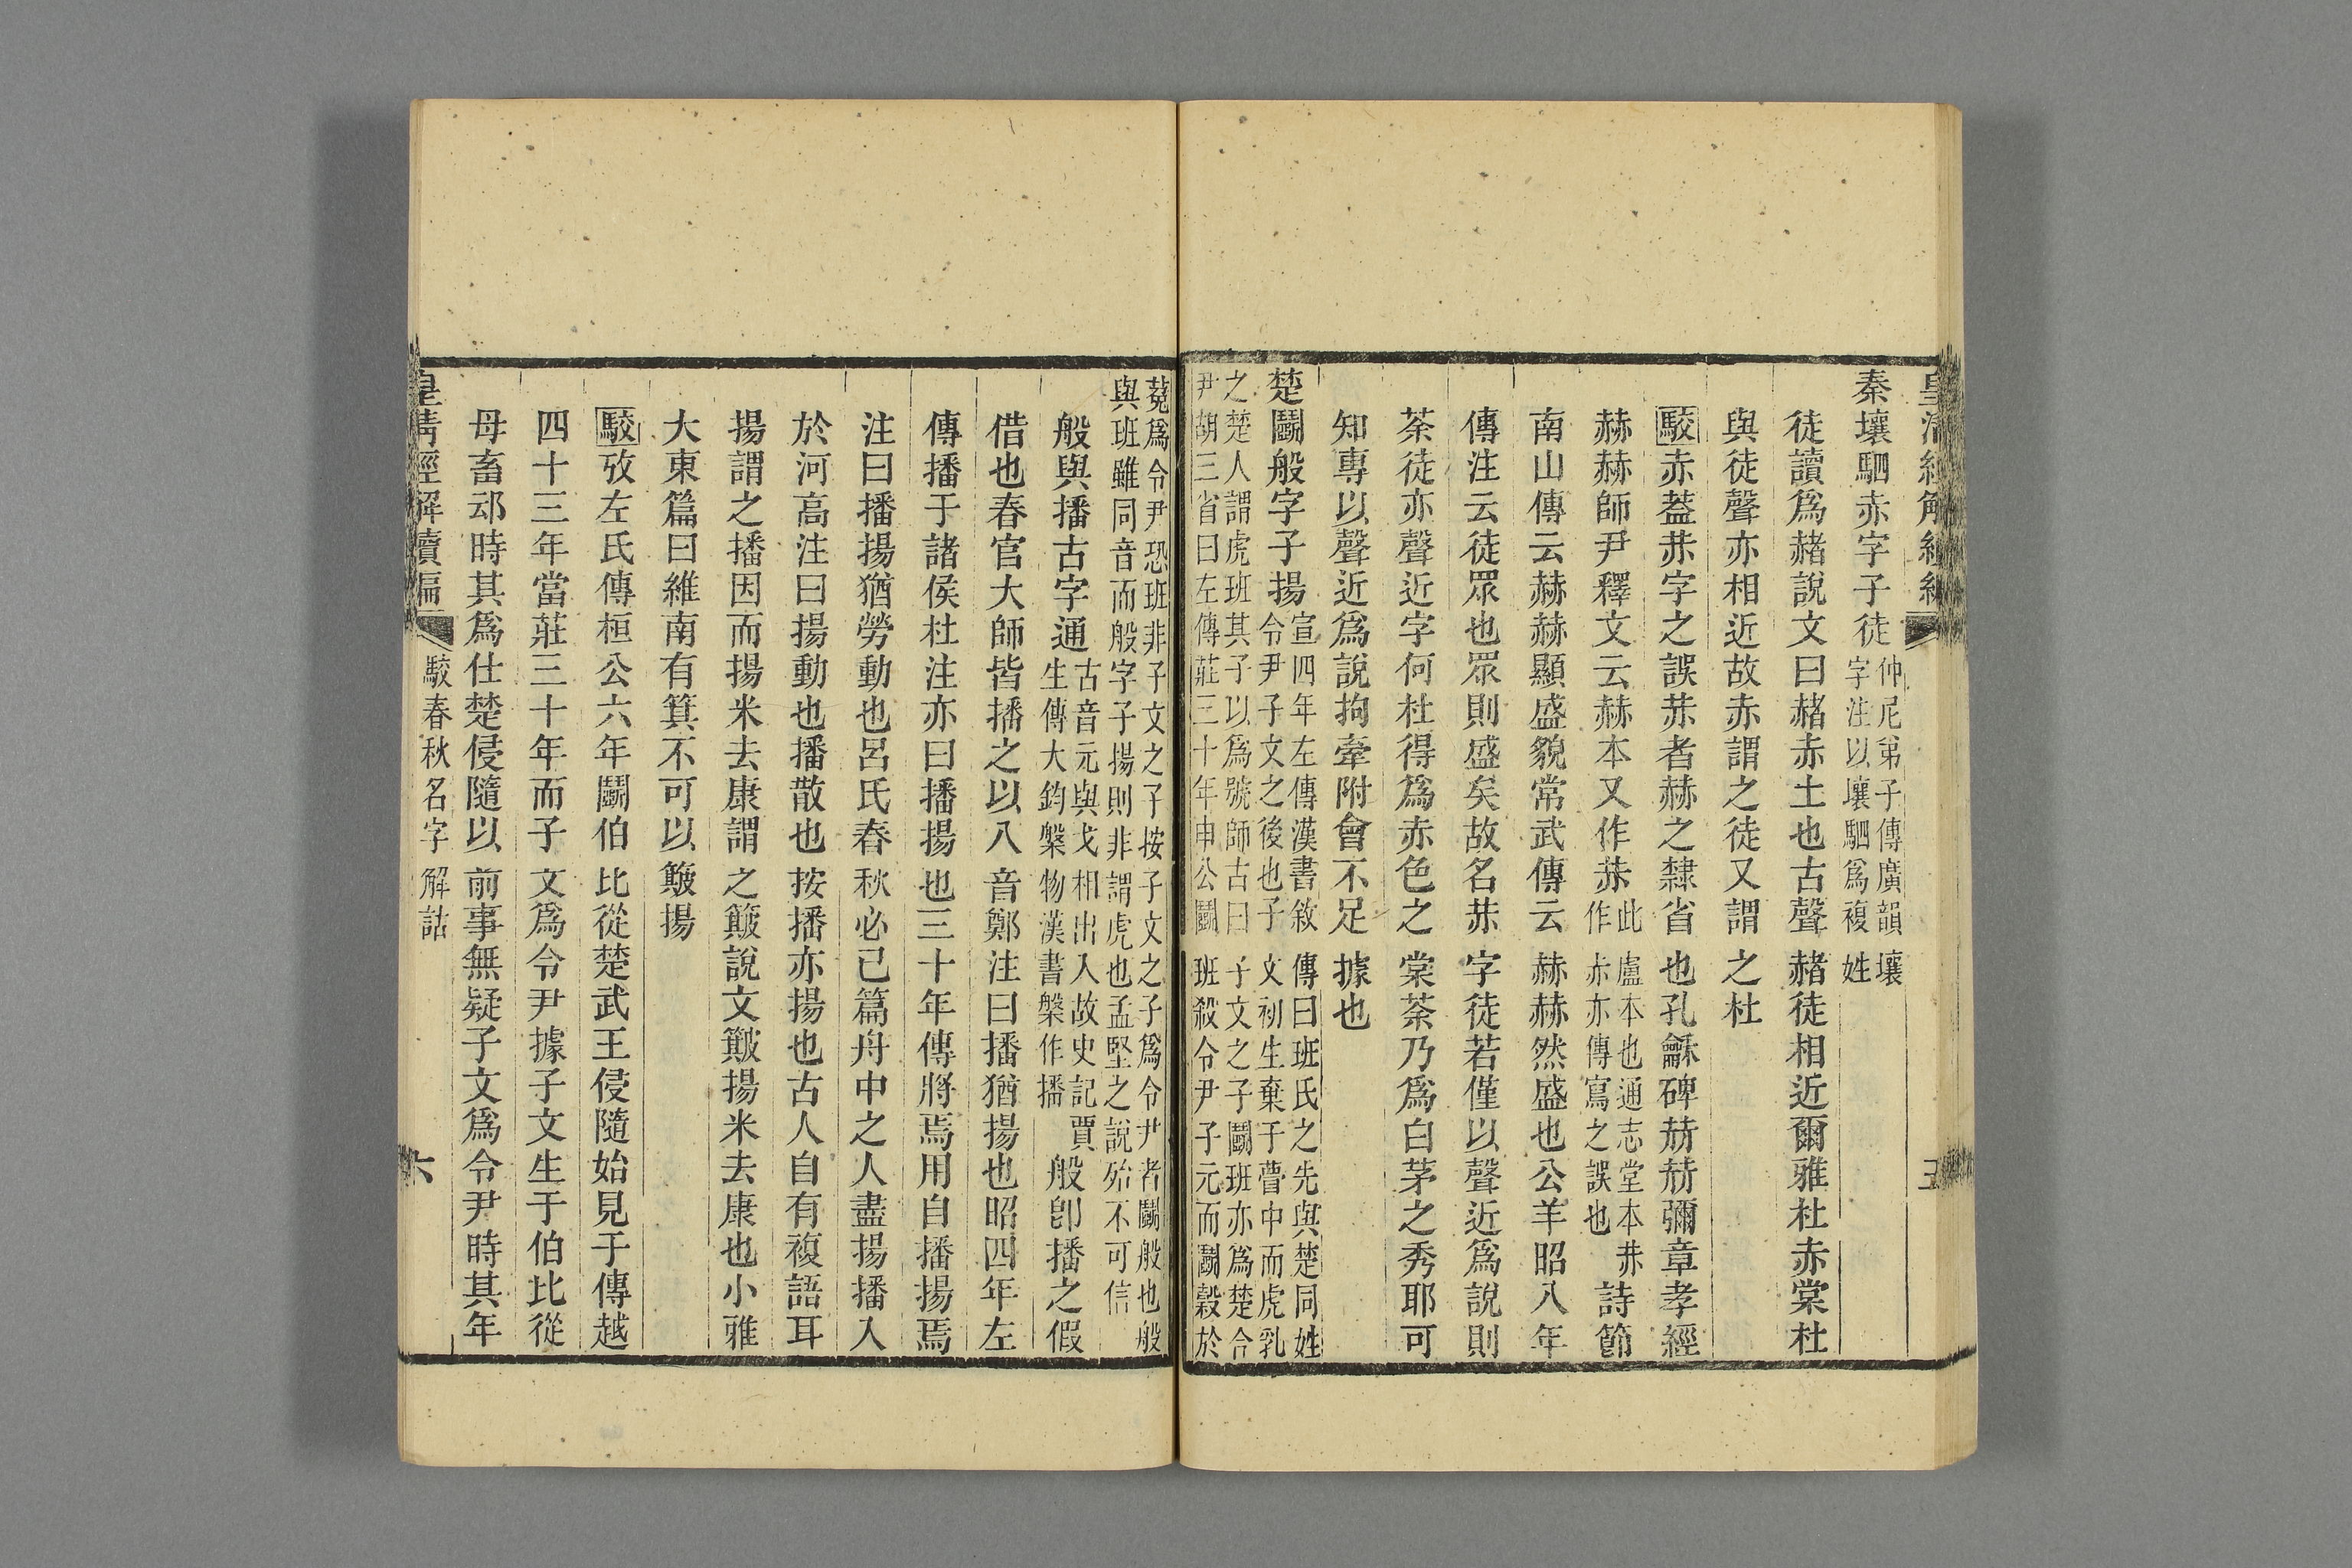 秦壤駟赤字子徒仲尼弟子傳廣韻壤
字注以壤駟爲複姓
徒讀爲赭說文曰赭赤土也古聲赭徒相近爾雅杜赤棠杜
與徒聲亦相近故赤謂之徒又謂之杜
駮赤蓋㶳字之誤㶳者赫之隸省也孔龢碑㶳㶳彌章孝經
赫赫師尹釋文云赫本又作㶳此盧本也通志堂本㶳
作赤亦傳寫之誤也詩節
南山傳云赫赫顯盛貌常武傳云赫赫然盛也公羊昭八年
傳注云徒眾也眾則盛矣故名㶳字徒若僅以聲近爲說則
荼徒亦聲近字何杜得爲赤色之棠荼乃爲白茅之秀耶可
知專以聲近爲說拘牽附會不足據也
楚鬭般字子揚宣四年左傳漢書敘傳曰班氏之先與楚同姓
令尹子文之後也子文初生棄于瞢中而虎乳
之楚人謂虎班其子以爲號師古曰子文之子鬭班亦爲楚令
尹胡三省曰左傳莊三十年申公鬭班殺令尹子元而鬭穀於
菟爲令尹恐班非子文之子按子文之子爲令尹者鬭般也般
與班雖同音而般字子揚則非謂虎也孟堅之說殆不可信
般與播古字通古音元與戈相出入故史記賈
生傳大鈞槃物漢書槃作播般卽播之假
借也春官大師皆播之以八音鄭注曰播猶揚也昭四年左
傳播于諸侯杜注亦曰播揚也三十年傳將焉用自播揚焉
注曰播揚猶勞動也呂氏春秋必己篇舟中之人盡揚播入
於河高注曰揚動也播散也按播亦揚也古人自有複語耳
揚謂之播因而揚米去康謂之簸說文簸揚米去康也小雅
大東篇曰維南有箕不可以簸揚
駮攷左氏傳桓公六年鬭伯比從楚武王侵隨始見于傳越
四十三年當莊三十年而子文爲令尹據子文生于伯比從
母畜䢵時其爲仕楚侵隨以前事無疑子文爲令尹時其年
皇清經解續編
駮春秋名字解詁
六